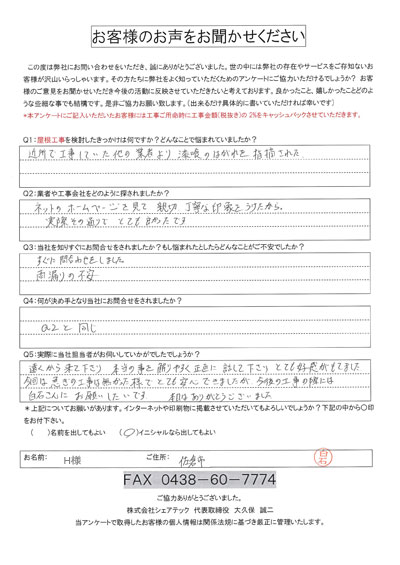 お客様のお声をお聞かせください
この度は弊社にお問い合わせをいただき、誠にありがとうございました。世の中には弊社の存在やサービスをご存知ないお
客様が沢山いらっしゃいます。その方たちに弊社をよく知っていただくためのアンケートにご協力いただけるでしょうか？ お客
様のご意見をお聞かせいただき今後の活動に反映させていただきたいと考えております。良かったこと、嬉しかったことどのよ
うな些細な事でも結構です。是非ご協力お願い致します。（出来るだけ具体的に書いていただければ幸いです）
*本アンケートにご記入いただいたお客様には工事ご用命時に工事金額（税抜き）の 2%をキャッシュバックさせていただきます。
Q1：屋根工事を検討したきっかけは何ですか？どんなことで悩まれていましたか？
近所で工事していた他の業者より 漆喰のはがれを指摘された
Q2：業者や工事会社をどのように探されましたか？
ネットのホームページで見て 親切、丁寧な印象をうけたから。
実際その通りで とても良かったです
Q3：当社を知りすぐにお問合せをされましたか？もし悩まれたとしたらどんなことがご不安でしたか？
すぐに問合わせをしました。
雨漏りの不安
Q4：何が決め手となり当社にお問合せをされましたか？
Q2と同じ
Q5：実際に当社担当者がお伺いしていかがでしたでしょうか？
遠くから来て下さり 本当の事を解りやすく正直に話して下さり とても好感がもてました
今回は急ぎの工事は無かった様で とても安心できましたが 今後の工事の際には
白石さんに お願いしたいです 本日はありがとうございました
＊上記についてお願いがあります。インターネットや印刷物に掲載させていただいてもよろしいでしょうか？下記の中から〇印
をお付下さい。
（ ）名前を出してもよい （〇）イニシャルなら出してもよい
お名前： H様 ご住所： 佐倉市 白石
FAX 0438-60-7774
ご協力ありがとうございました。
株式会社シェアテック 代表取締役 大久保 誠二
当アンケートで取得したお客様の個人情報は関係法規に基づき厳正に管理いたします。